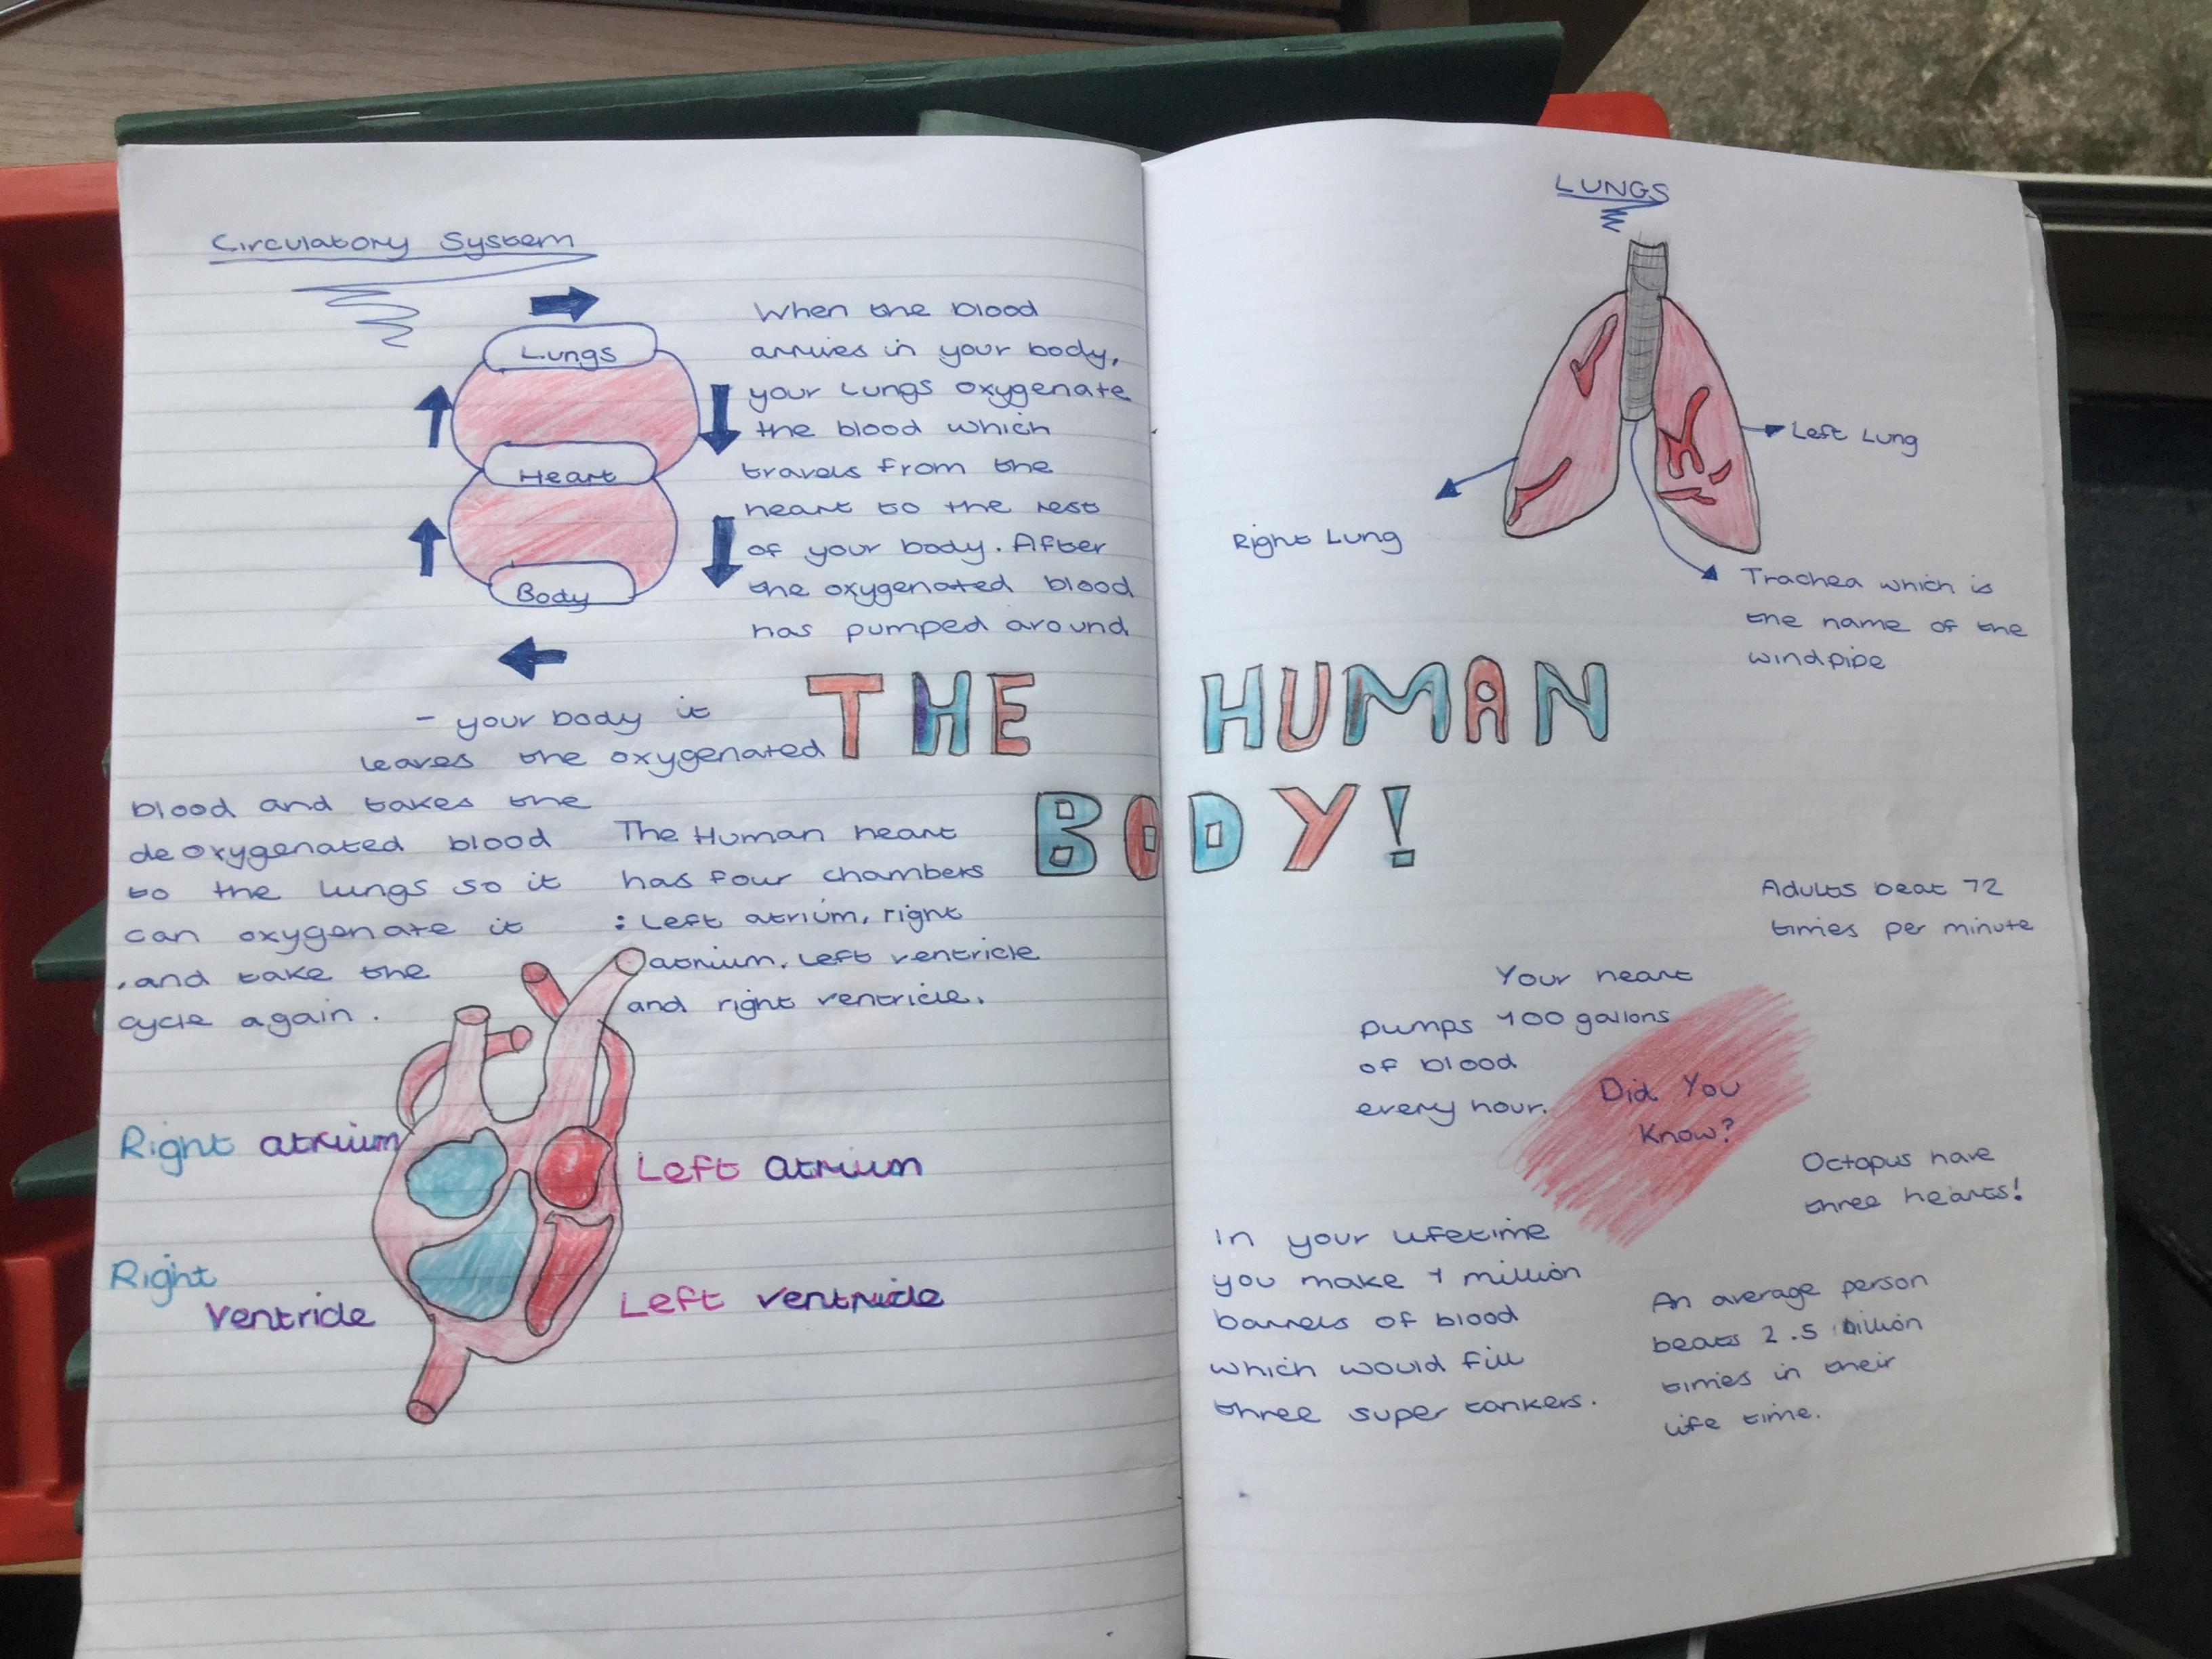 Circulatory System
Lungs
Heart
Body
When the blood
arrives in your body,
your Lungs oxygenate
the blood which
travels from the
heart to the rest
of your body. After
the oxygenated blood
has pumped around
- your body it
leaves the oxygenated
blood and takes the
deoxygenated blood
to the lungs so it
can oxygenate it
, and take the
cycle again.
The Human heart
has four chambers
: Left atrium, right
atrium, left ventricle
and right ventricle.
Right atrium
Left atrium
Right
Ventricle
Left ventricle
THE HUMAN
BODY!
LUNGS
Left Lung
Right Lung
Trachea which is
the name of the
windpipe
Adults beat 72
times per minute
Your heart
pumps 100 gallons
of blood
every hour.
Did You
Know?
Octopus have
three hearts!
In your lifetime
you make 1 million
barrels of blood
which would fill
three super tankers.
An average person
beats 2.5 billion
times in their
life time.